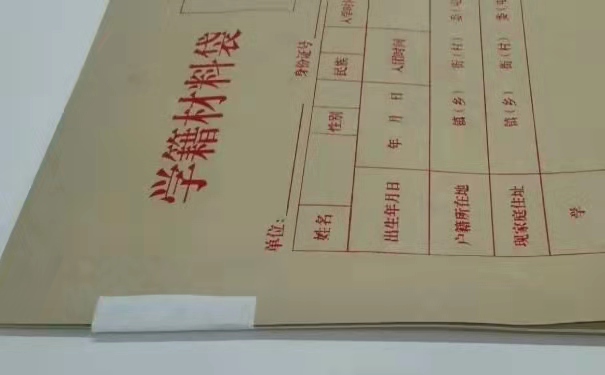 学籍材料袋
单位：
身份证号
姓名 性别 民族 入学时间
出生年月日 年 月 日 入团时间
户籍所在地 镇（乡） 街（村） 委（屯
现家庭住址 镇（乡） 街（村） 委（屯
学